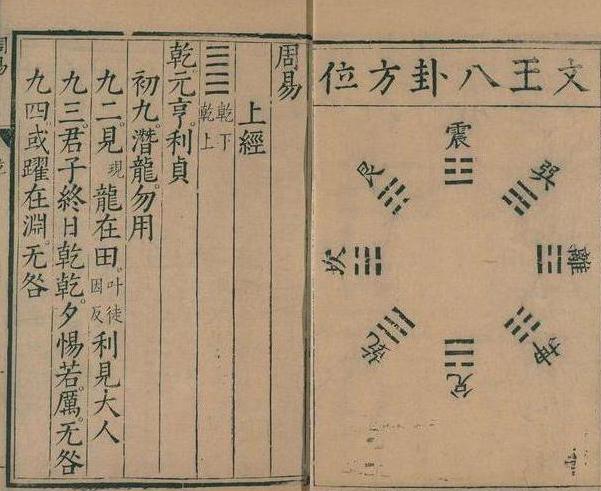 文王八卦方位
震
巽
離
坤
兌
乾
坎
艮
周易
上經
䷀ 乾下 乾上
乾。元亨。利貞
初九。潛龍。勿用
九二。見現龍在田。叶徒因反利見大人
九三。君子終日乾乾。夕惕若。厲。无咎
九四。或躍在淵。无咎